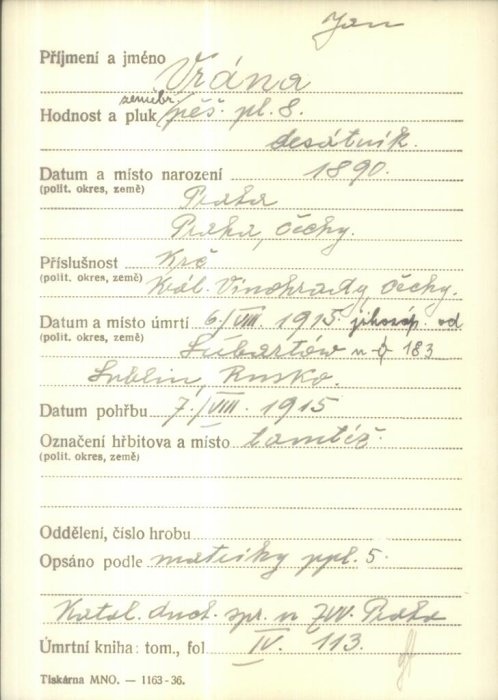 Jan
Příjmení a jméno Vrána
zeměbr.
Hodnost a pluk pěš. pl. 8.
desátník.
Datum a místo narození 1890.
(polit. okres, země) Praha
Praha, Čechy.
Příslušnost Krč
(polit. okres, země) Král. Vinohrady, Čechy.
Datum a místo úmrtí 6/VIII. 1915. jihozáp. od
(polit. okres, země) Lubartów u 183
Lublin, Rusko.
Datum pohřbu 7./VIII. 1915
Označení hřbitova a místo tamtéž.
(polit. okres, země)
Oddělení, číslo hrobu
Opsáno podle matriky ppl. 5.
Katol. duch. spr. v ZVV. Praha
Úmrtní kniha: tom., fol IV. 113.
Tiskárna MNO. — 1163-36.